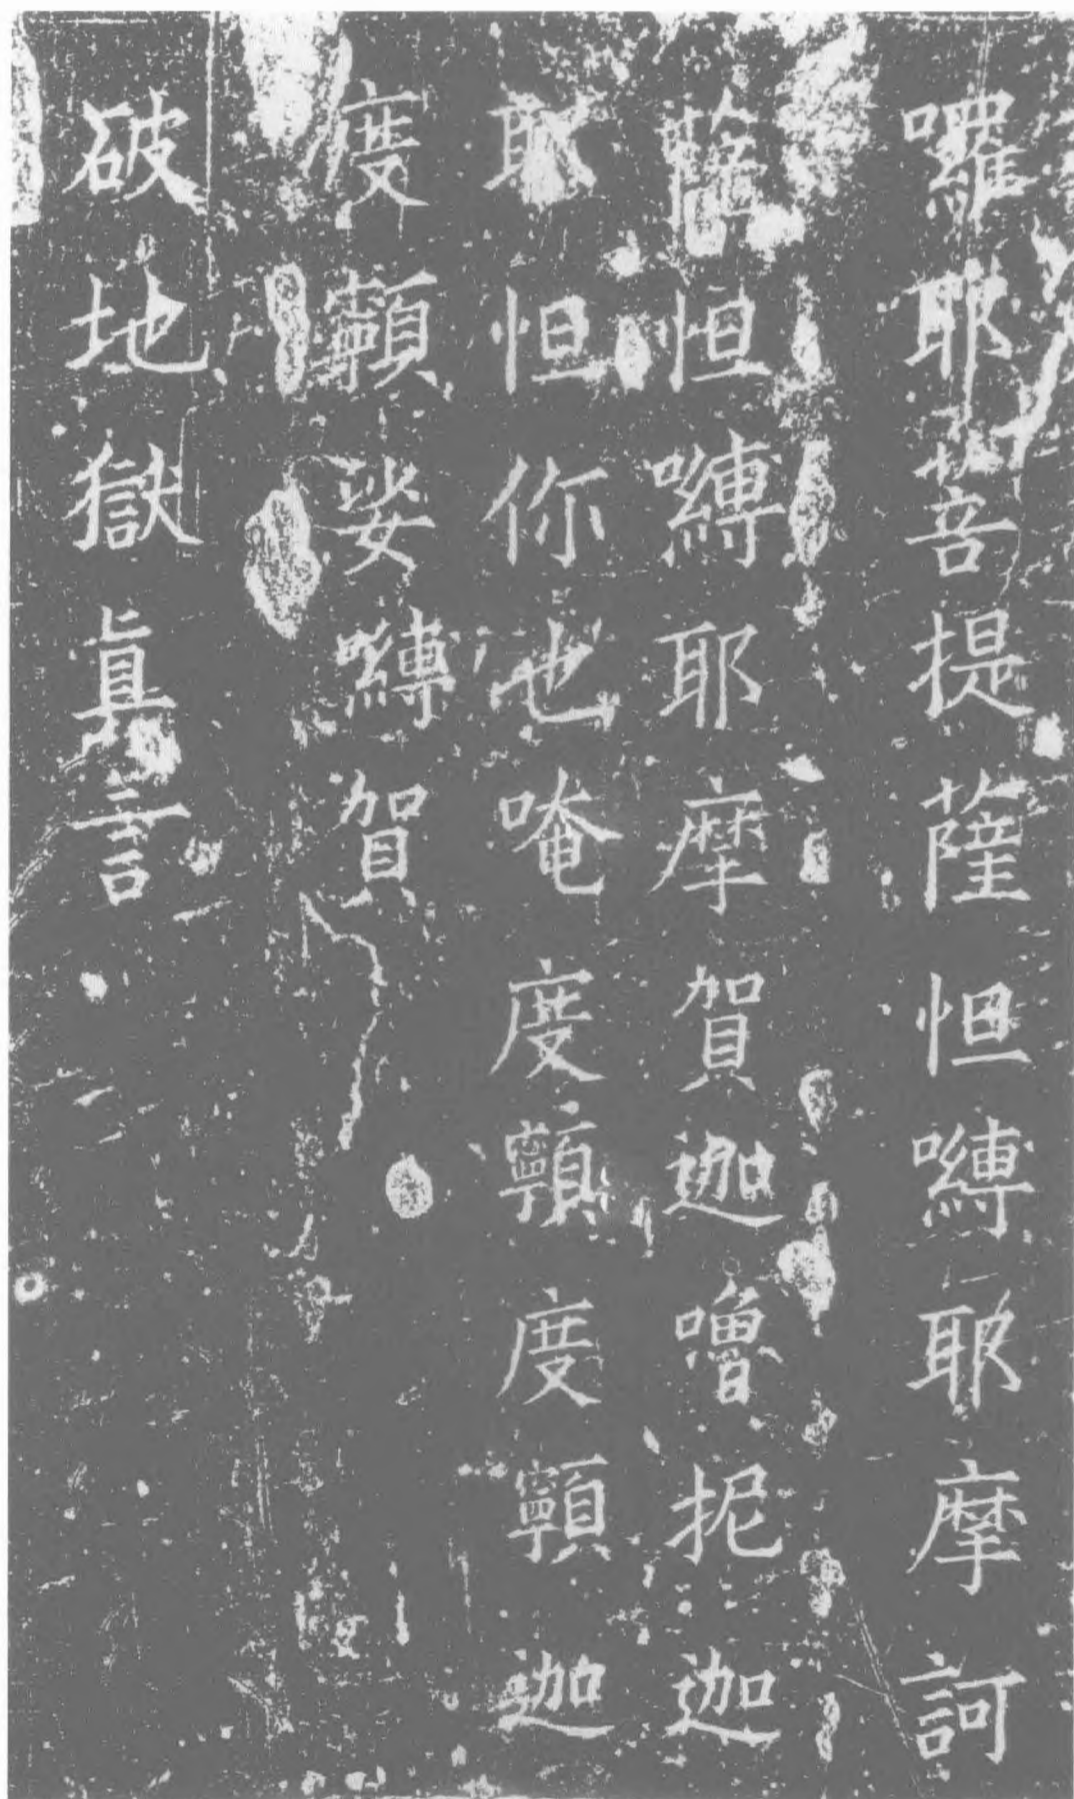 囉耶菩提薩怛嚩耶摩訶
薩怛嚩耶摩賀迦嚕抳迦
耶怛你也唵度顊度顊迦
度顊娑嚩賀
破地獄真言